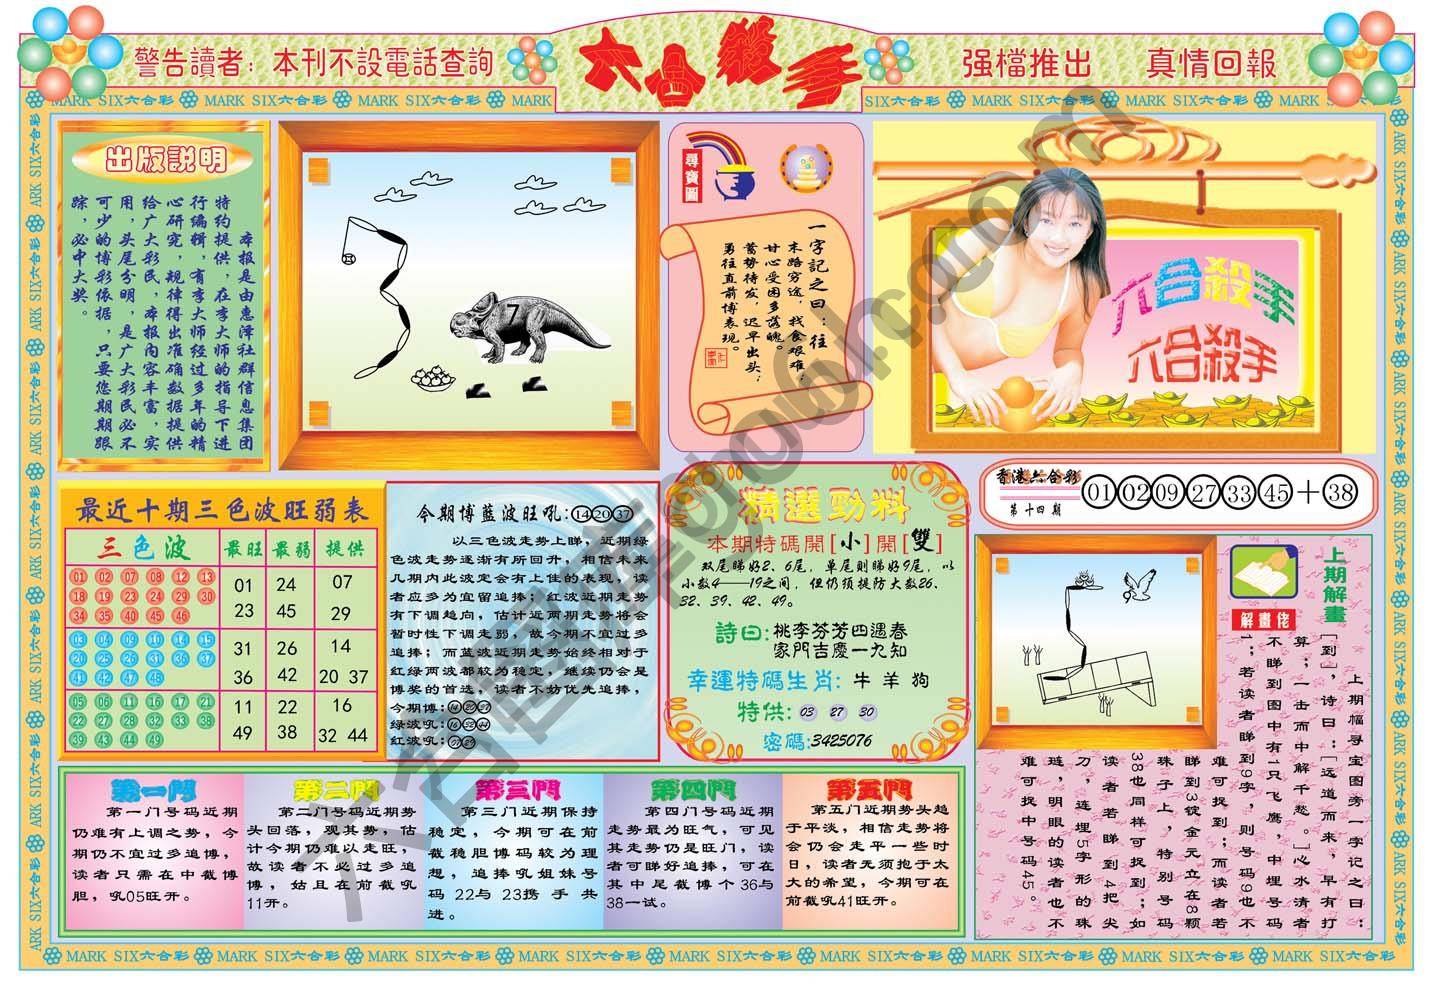 警告讀者：本刊不設電話查詢
六合殺手
强檔推出 真情回報
MARK SIX六合彩 MARK SIX六合彩 MARK SIX六合彩 MARK
SIX六合彩 MARK SIX六合彩 MARK SIX六合彩
出版説明
本报是由惠泽社群信息集团
特约提供，在李大师的指导下进
行编辑，有李大师经过多年的精
心研究，规律得出准确数据提供
给广大彩民，本报内容丰富，实
用，头尾分明，是广大彩民必不
可少的博彩依据，只要您期期跟
踪，必中大奖。
7
尋寶圖
一字記之曰：往
末路穷途，找食艰难；
甘心受困多落魄。
蓄势待发，迟早出头；
勇往直前博表现。
六合殺手
六合殺手
香港六合彩
第十四期
01 02 09 27 33 45 + 38
最近十期三色波旺弱表
三色波 最旺 最弱 提供
01 02 07 08 12 13
18 19 23 24 29 30
34 35 40 45 46
01 24 07
23 45 29
03 04 09 10 14 15
20 25 26 31 36 37
41 42 47 48
31 26 14
36 42 20 37
05 06 11 16 17 21
22 27 28 32 33 38
39 43 44 49
11 22 16
49 38 32 44
今期博藍波旺吼：14 20 37
以三色波走势上睇，近期绿
色波走势逐渐有所回升，相信未来
几期内此波定会有上佳的表现，读
者应多为宜留追捧；红波近期走势
有下调趋向，估计近两期走势将会
暂时性下调走弱，故今期不宜过多
追捧；而蓝波近期走势始终相对于
红绿两波都较为稳定，继续仍会是
博奖的首选，读者不妨优先追捧，
今期博：14 20 37
绿波吼：16 32 44
红波吼：07 29
精選勁料
本期特碼開[小]開[雙]
双尾睇好2、6尾，单尾则睇好9尾，以
小数4——19之间，但仍须提防大数26、
32、39、42、49。
詩曰：桃李芬芳四遇春
家門吉慶一九知
幸運特碼生肖：牛 羊 狗
特供：03 27 30
密碼：3425076
上期解畫
解畫佬
上期幅寻宝图旁一字记之曰：
［到］，诗曰：［远道而来，早有打
算；一击而中解千愁。］心水清者
不睇到图中有1只飞鹰，中埋号码
1；若读者睇到9字，则号码9也不
难可捉到；而读者若
睇到3锭金元立在8颗
珠子上，特别号码
38也同样可捉到；如
读者若睇到4把尖
刀，连埋5字形的珠
琏，明眼的读者也不
难可捉中号码45。
第一門
第一门号码近期
仍难有上调之势，今
期仍不宜过多追博，
读者只需在中截博
胆，吼05旺开。
第二門
第二门号码近期势
头回落，观其势，估
计今期仍难以走旺，
故读者不必过多追
博，姑且在前截吼
11开。
第三門
第三门近期保持
稳定，今期可在前
截稳胆博码较为理
想，追捧吼姐妹号
码22与23携手共
进。
第四門
第四门号码近期
走势最为旺气，可见
其走势仍是旺门，读
者可睇好追捧，可在
其中足截博个36与
38一试。
第五門
第五门近期势头趋
于平淡，相信走势将
会仍会走平一些时
日，读者无须抱于太
大的希望，今期可在
前截吼41旺开。
MARK SIX六合彩 MARK SIX六合彩 MARK SIX六合彩 MARK SIX六合彩 MARK SIX六合彩 MARK SIX六合彩 MARK SIX六合彩 MARK SIX六合彩 MARK SIX六合彩